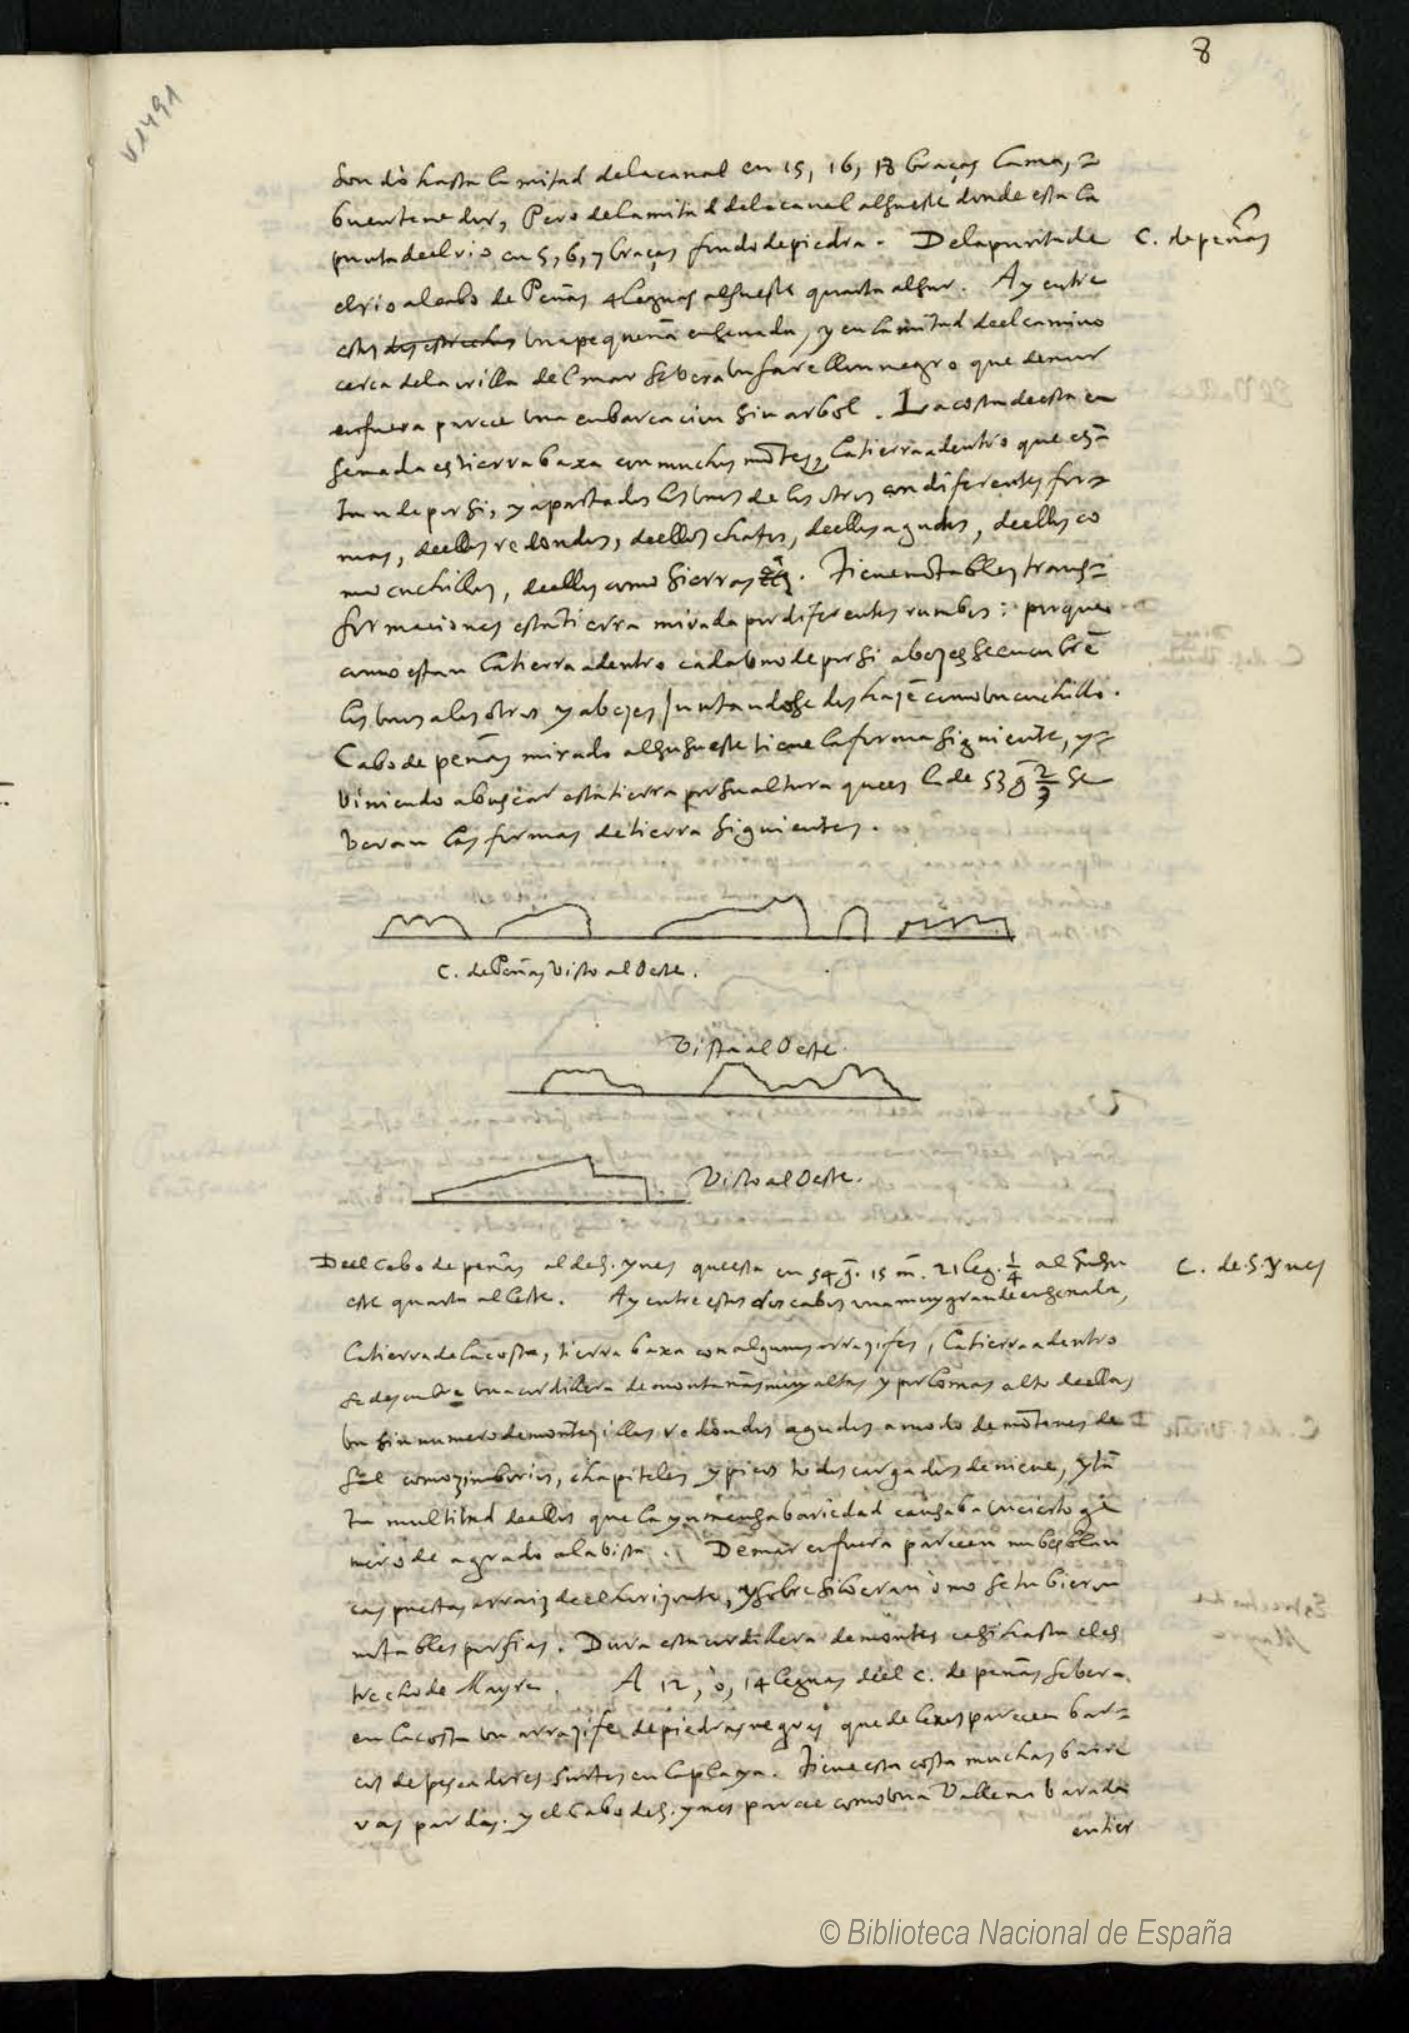 8
V 1491
fondo hasta la mitad de la canal en 15, 16, 18 braças lama, =
buen tenedor, Pero de la mitad de la canal alsueste donde esta la
punta de el rio en 5, 6, 7 braças fondo de piedra. De la punta de
C. de peñas
el rio al cabo de Peñas 4 leguas alsueste quarta alsur. Ay entre
estos dos estrechos una pequeña ensenada, y en la mitad de el camino
cerca de la orilla del mar se vera un farellon negro que de mar
en fuera parece una enbarcacion sin arbol. La costa de esta en
senada es tierra baxa con muchos mõtes, la tierra adentro que es=
tan de por si, y apartados los unos de los otros con diferentes for=
mas, de ellos redondos, de ellos chatos, de ellos agudos, de ellos co
mo cuchillos, de ellos como sierras. Tiene notables trans=
formaciones esta tierra mirada por diferentes rumbos: porque
como estan la tierra adentro cada uno de por si abezes se encubrẽ
los unos a los otros y abezes juntandose dos hazẽ como un cuchillo.
Cabo de peñas mirado al susueste tiene la forma siguiente, y =
viniendo a buscar esta tierra por su altura que es la de 53 g 2/3 se
veran las formas de tierra siguientes.
C. de Peñas visto al Oeste.
Vista al Oeste.
Visto al Oeste.
De el Cabo de peñas al de S. ynes que esta en 54 g. 15 m. 21 leg. 1/4 al susu
C. de S. Ynes
este quarta al leste. Ay entre estos dos cabos una muy grande ensenada,
la tierra de la costa, tierra baxa con algunos arrazifes, la tierra adentro
se descubre una cordillera de montañas muy altas y por lo mas alto de ellas
un sin numero de montezillos redondos agudos a modo de mõtones de
sal como zimborios, chapiteles y picos todos cargados de nieue, y tã
ta multitud de ellos que la ynmensa bariedad causaba un cierto ge
nero de agrado a la bista. De mar en fuera parecen nubes blan
cas puestas arraiz de el horizonte, y sobre si lo eran ò no se tubieron
notables porfias. Dura esta cordillera de montes casi hasta el es
trecho de Mayre. A 12, ò, 14 leguas de el c. de peñas se vera
en la costa un arrazife de piedras negras que de lexos parecen bar=
cos de pescadores surtos en la playa. Tiene esta costa muchas barre
ras pardas. y el Cabo de S. ynes parece como una Vallena barada
en tier
© Biblioteca Nacional de España